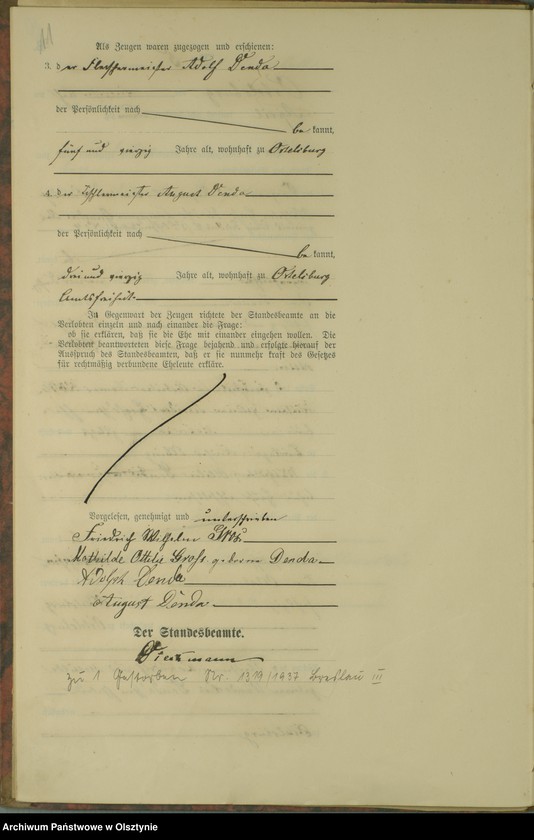 11
Als Zeugen waren zugezogen und erschienen:
3. der Fleischermeister Adolf Denda
der Persönlichkeit nach
be kannt,
fünf und vierzig Jahre alt, wohnhaft zu Ortelsburg
4. der Tischlermeister August Denda
der Persönlichkeit nach
be kannt,
drei und vierzig Jahre alt, wohnhaft zu Ortelsburg
Amtsfreiheit.
In Gegenwart der Zeugen richtete der Standesbeamte an die
Verlobten einzeln und nach einander die Frage:
ob sie erklären, daß sie die Ehe mit einander eingehen wollen. Die
Verlobten beantworteten diese Frage bejahend und erfolgte hierauf der
Ausspruch des Standesbeamten, daß er sie nunmehr kraft des Gesetzes
für rechtmäßig verbundene Eheleute erkläre.
Vorgelesen, genehmigt und unterschrieben
Friedrich Wilhelm
Mathilde Ottilie Groß geborne Denda
Adolph Denda
August Denda
Der Standesbeamte.
zu 1 Gestorben Nr. 1319/1937 Breslau III
Archiwum Państwowe w Olsztynie